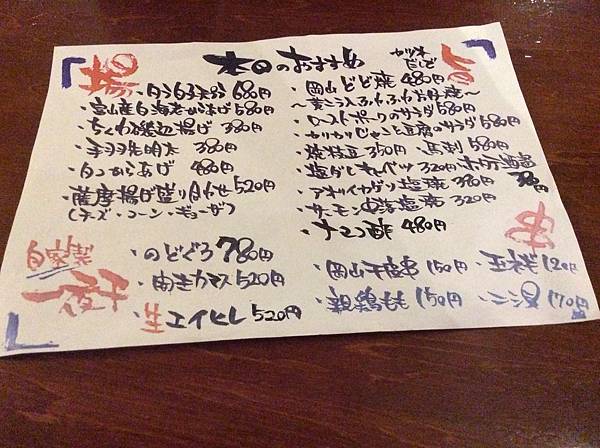 本日のおすすめ
カツオ
だしど
揚
・タコ 天ぷら 680円
・富山産白海老からあげ 580円
・ちくわ磯辺揚げ 380円
・手羽先明太 380円
・タコからあげ 480円
・薩摩揚げ盛り合わせ 520円
(チーズ・コーン・ギョーザ)
自家製
一夜干
・のどぐろ 780円
・カマス 520円
・生エイヒレ 520円
・岡山どど焼 480円
〜 ふわふわお好焼〜
・ローストポークのサラダ 580円
・カリカリじゃこと豆腐のサラダ 580円
・焼枝豆 350円 ・馬刺 580円
・塩ダレキャベツ 320円
380円
・アオリイカゲソ塩焼 380円
・サーモン 塩焼 320円
・ナマコ酢 480円
串
・岡山千屋串 150円 ・玉ネギ 120円
・親鶏もも 150円 ・ニンニク 170円